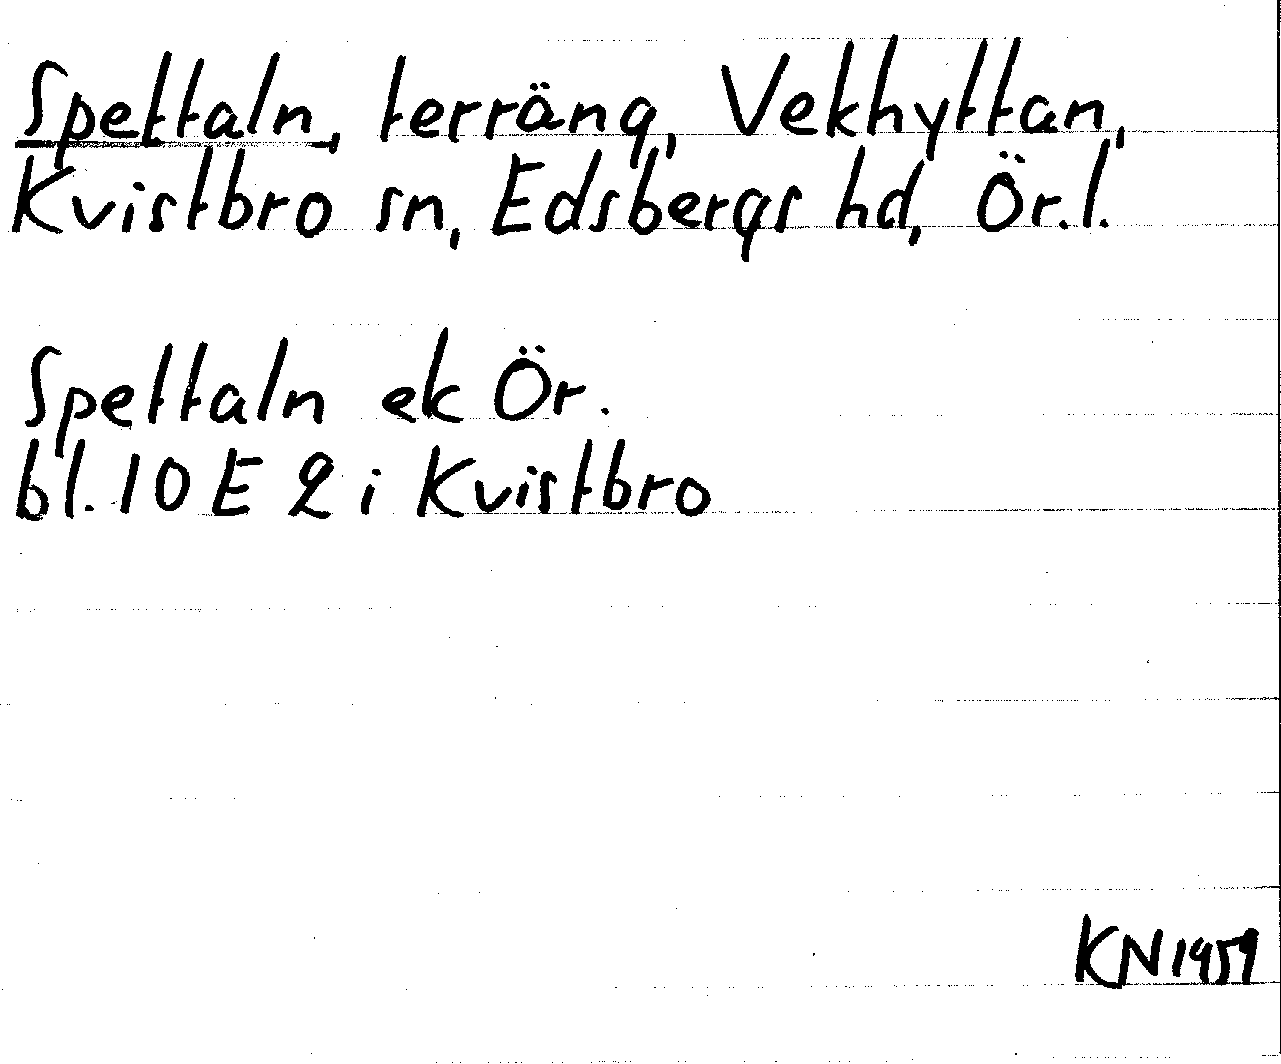 Spettaln, terräng, Vekhyttan,
Kvistbro sn, Edsbergs hd, Ör.l.
Spettaln ek Ör.
bl. 10 E 2 i Kvistbro
KN 1959